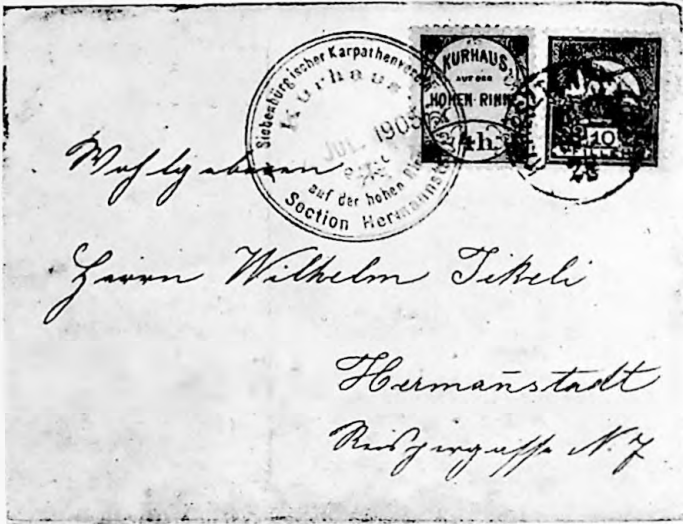 Siebenbürgischer Karpathenverein
Kurhaus
JUL. 1905
auf der hohen Rinne
Section Hermannstadt
KURHAUS
AUF DER
HOHEN RINNE
4h.
10
23
Wohlgeboren
Herrn Wilhelm Tikeli
Hermannstadt
N. 7